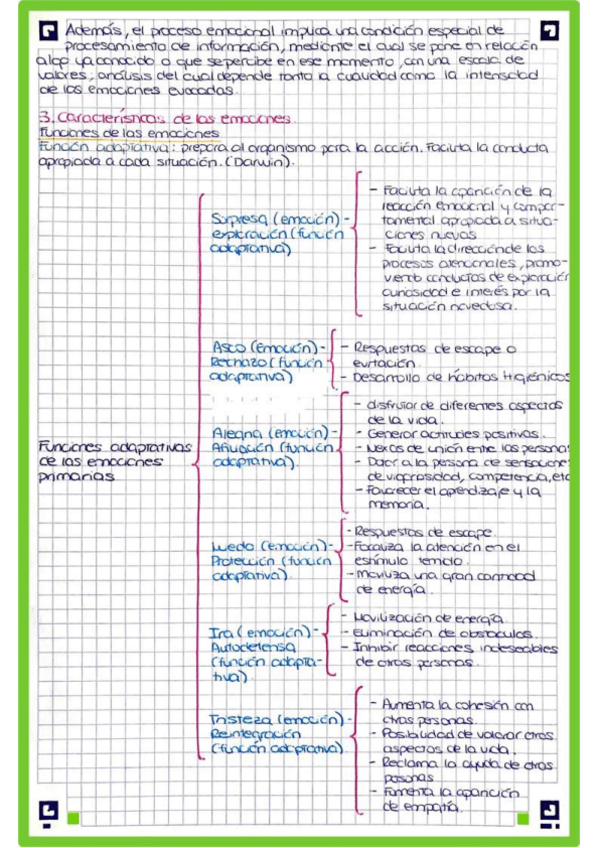 Además, el proceso emocional implica una condición especial de
procesamiento de información, mediante el cual se pone en relación
algo ya conocido o que se percibe en ese momento, con una escala de
valores; análisis del cual depende tanto la cualidad como la intensidad
de las emociones evocadas.
3. Características de las emociones.
Funciones de las emociones
Función adaptativa: prepara al organismo para la acción. Facilita la conducta
apropiada a cada situación. (Darwin).
Funciones adaptativas
de las emociones
primarias
Sorpresa (emoción) -
exploración (función
adaptativa)
- Facilita la aparición de la
reacción emocional y compor-
tamental apropiada a situa-
ciones nuevas
- Facilita la dirección de los
procesos atencionales, promo-
viendo conductas de exploración
curiosidad e interés por la
situación novedosa.
Asco (emoción) -
Rechazo (función
adaptativa)
- Respuestas de escape o
evitación
- Desarrollo de hábitos higiénicos
Alegría (emoción) -
Afiliación (función
adaptativa).
- disfrutar de diferentes aspectos
de la vida.
- Generar actitudes positivas.
- Nexos de unión entre las persona
- Dotar a la persona de sensacione
de vigorosidad, competencia, etc
- Favorecer el aprendizaje y la
memoria.
Miedo (emoción) -
Protección (función
adaptativa)
- Respuestas de escape.
- Focaliza la atención en el
estímulo temido.
- Moviliza una gran cantidad
de energía.
Ira (emoción) -
Autodefensa
(función adapta-
tiva)
- Movilización de energía
- Eliminación de obstáculos.
- Inhibir reacciones indeseables
de otras personas.
Tristeza (emoción) -
Reintegración
(función adaptativa)
- Aumenta la cohesión con
otras personas.
- Posibilidad de valorar otros
aspectos de la vida.
- Reclama la ayuda de otras
personas
- Fomenta la aparición
de empatía.